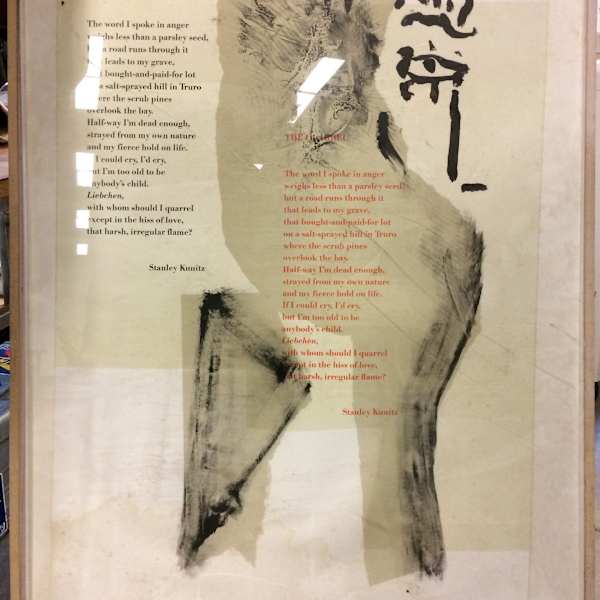 The word I spoke in anger
weighs less than a parsley seed,
a road runs through it
leads to my grave,
that bought-and-paid-for lot
a salt-sprayed hill in Truro
where the scrub pines
overlook the bay.
Half-way I'm dead enough,
strayed from my own nature
and my fierce hold on life.
I could cry, I'd cry,
but I'm too old to be
anybody's child.
Liebchen,
with whom should I quarrel
except in the hiss of love,
that harsh, irregular flame?
Stanley Kunitz
THE QUARREL
The word I spoke in anger
weighs less than a parsley seed,
but a road runs through it
that leads to my grave,
that bought-and-paid-for lot
on a salt-sprayed hill in Truro
where the scrub pines
overlook the bay.
Half-way I'm dead enough,
strayed from my own nature
and my fierce hold on life.
If I could cry, I'd cry,
but I'm too old to be
anybody's child.
Liebchen,
with whom should I quarrel
except in the hiss of love,
that harsh, irregular flame?
Stanley Kunitz